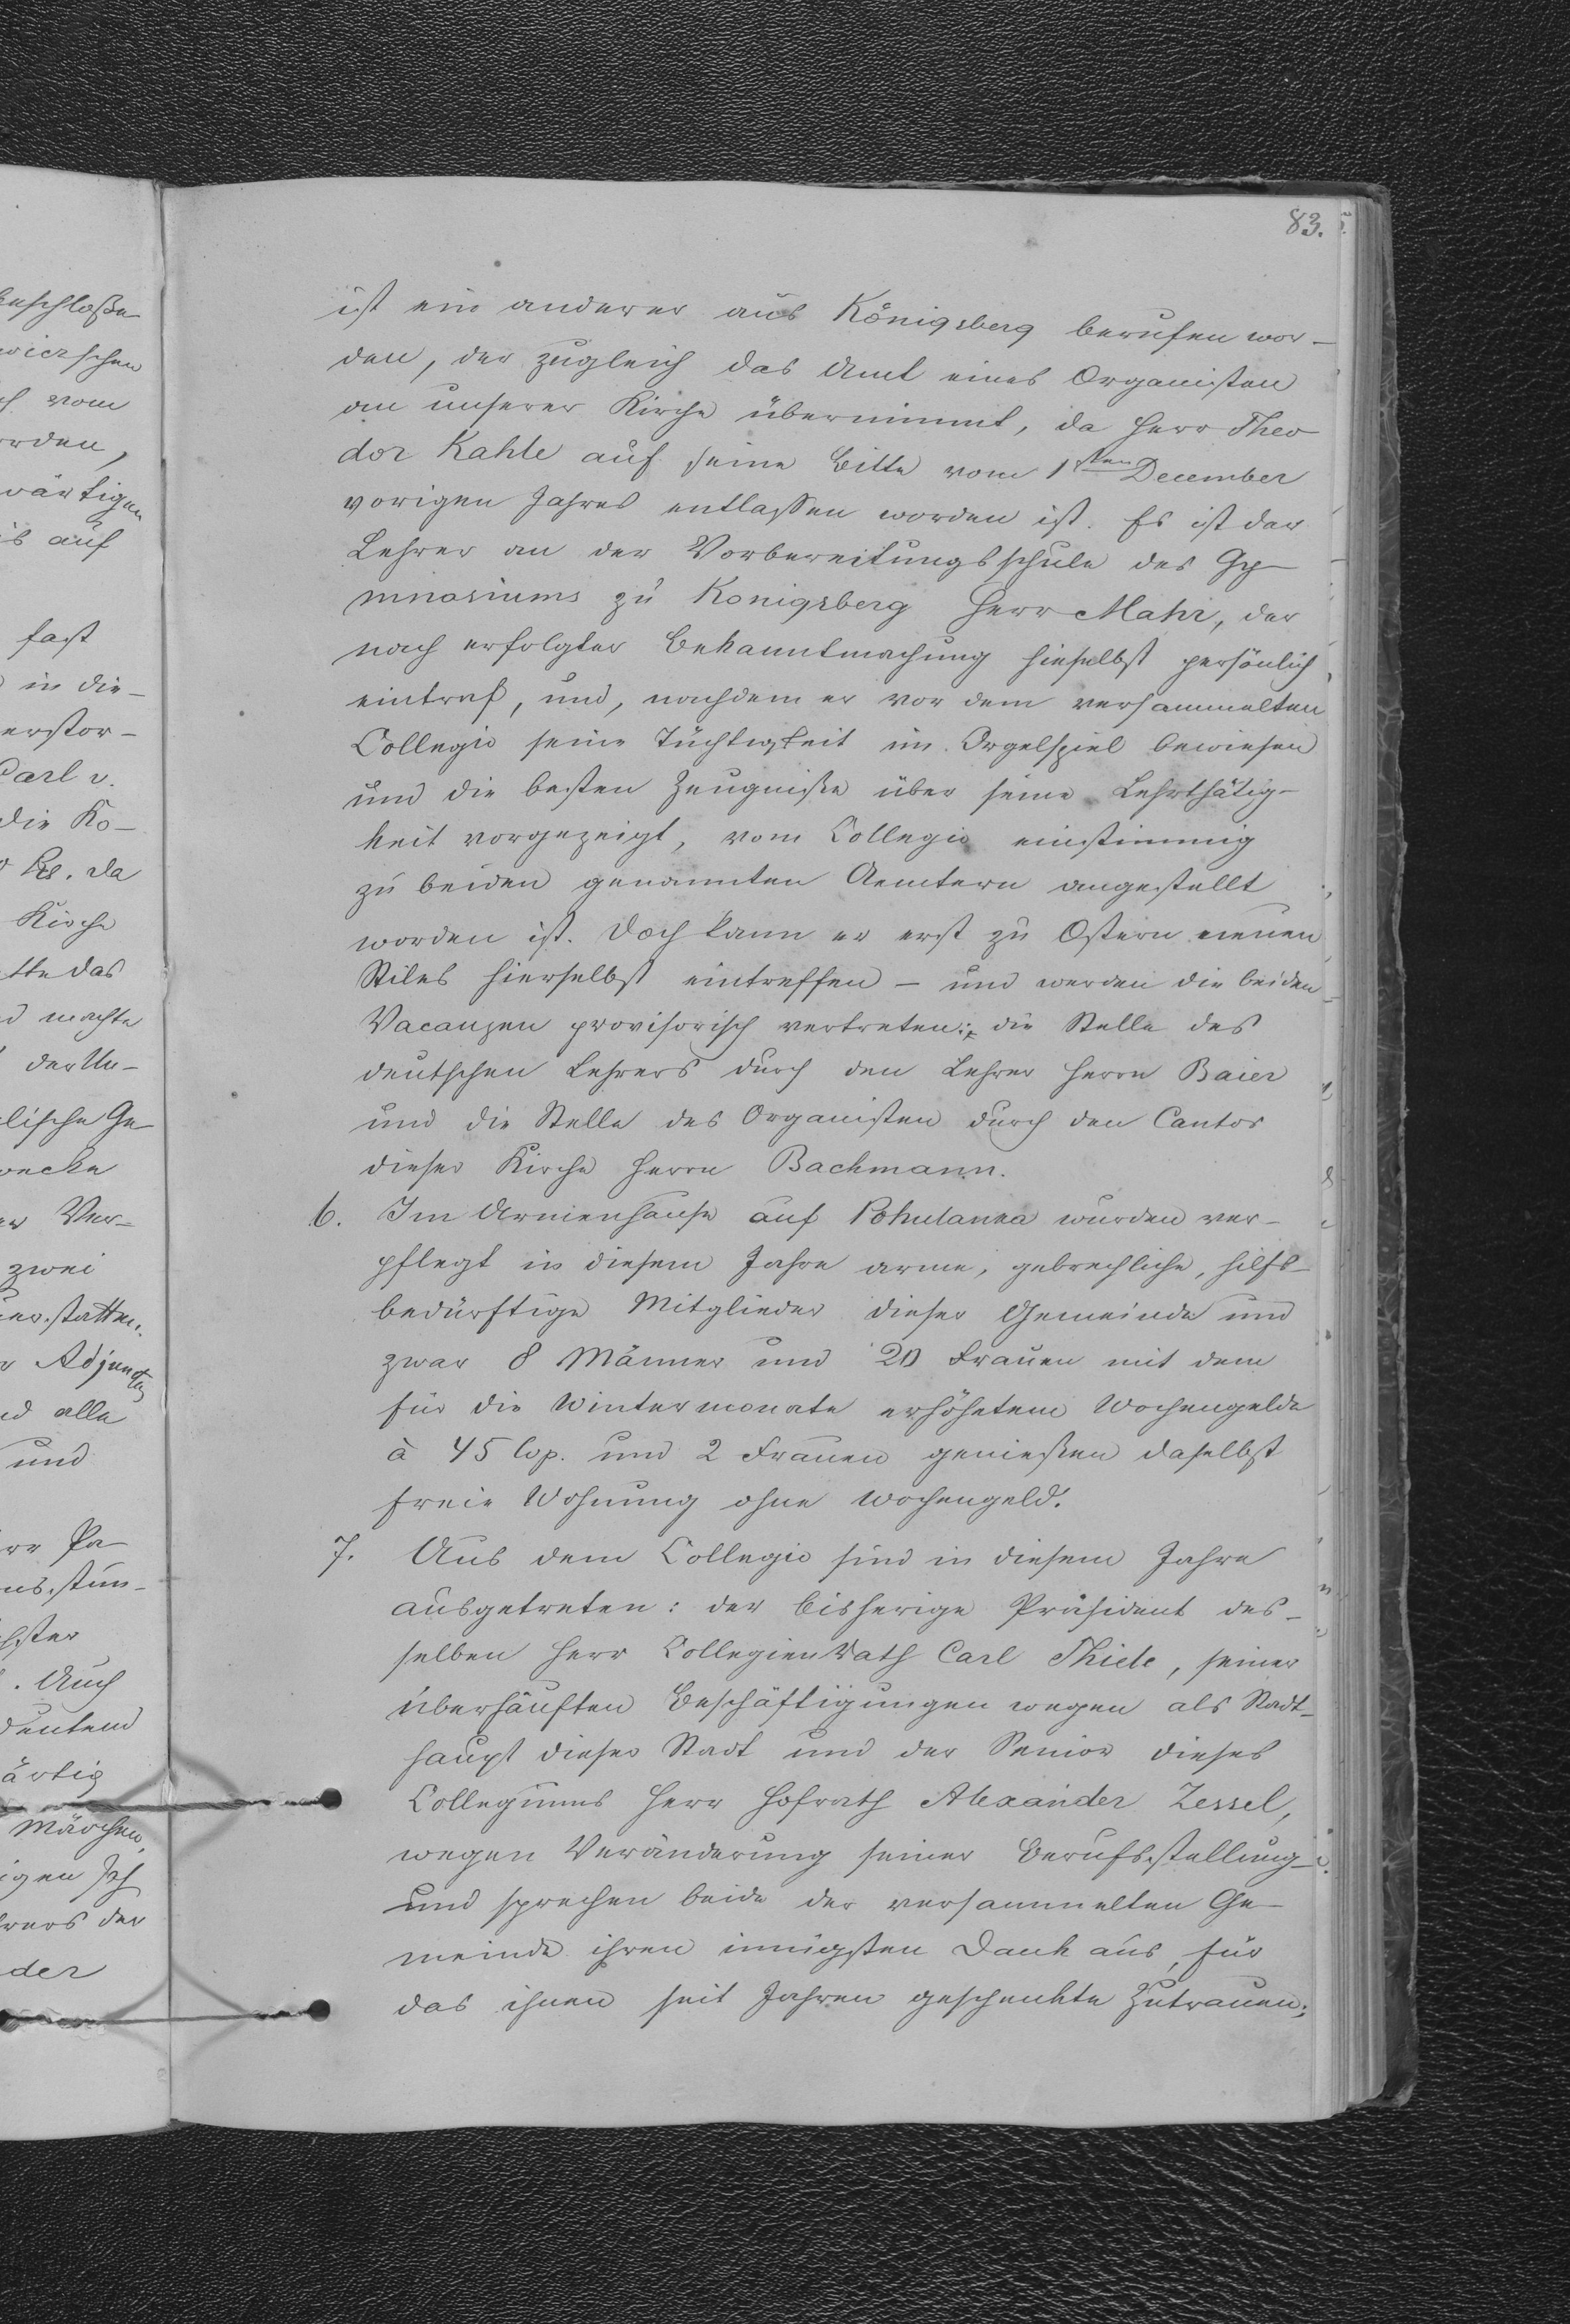 83.
ist ein anderer aus Königsberg berufen wor-
den, der zugleich das Amt eines Organisten
an unserer Kirche übernimmt, da Herr Theo
dor Kahle auf seine Bitte vom 1sten December
vorigen Jahres entlassen worden ist. Es ist der
Lehrer an der Vorbereitungsschule des Gy-
mnasiums zu Konigsberg Herr Mahr, der
nach erfolgter Bekanntmachung hieselbst persönlich
eintraf, und, nachdem er vor dem versammelten
Collegio seine Tüchtigkeit im Orgelspiel bewiesen
und die besten Zeugniße über seine Lehrthätig-
keit vorgezeigt, vom Collegio einstimmig
zu beiden genannten Aemtern angestellt
worden ist. Doch kann er erst zu Ostern neuen
Stiles hierselbst eintreffen – und werden die beiden
Vacanzen provisorisch vertreten: die Stelle des
deutschen Lehrers durch den Lehrer Herrn Baier
und die Stelle des Organisten durch den Cantor
dieser Kirche Herrn Bachmann.
6. Im Armenhause auf Pohulanka wurden ver-
pflegt in diesem Jahre arme, gebrechliche, hilfs-
bedürftige Mitglieder dieser Gemeinde und
zwar 8 Männer und 20 Frauen mit dem
für die Wintermonate erhöhetem Wochengelde
à 45 Cop. und 2 Frauen genießen daselbst
freie Wohnung ohne Wochengeld.
7. Aus dem Collegio sind in diesem Jahre
ausgetreten: der bisherige Präsident des-
selben Herr Collegien Rath Carl Thiele, seiner
überhäuften Beschäftigungen wegen als Stadt-
haupt dieser Stadt und der Senior dieses
Collegiums Herr Hofrath Alexander Zessel,
wegen Veränderung seiner Berufsstellung
und sprechen beide der versammelten Ge-
meinde ihren innigsten Dank aus, für
das ihnen seit Jahren geschenkte Zutrauen;